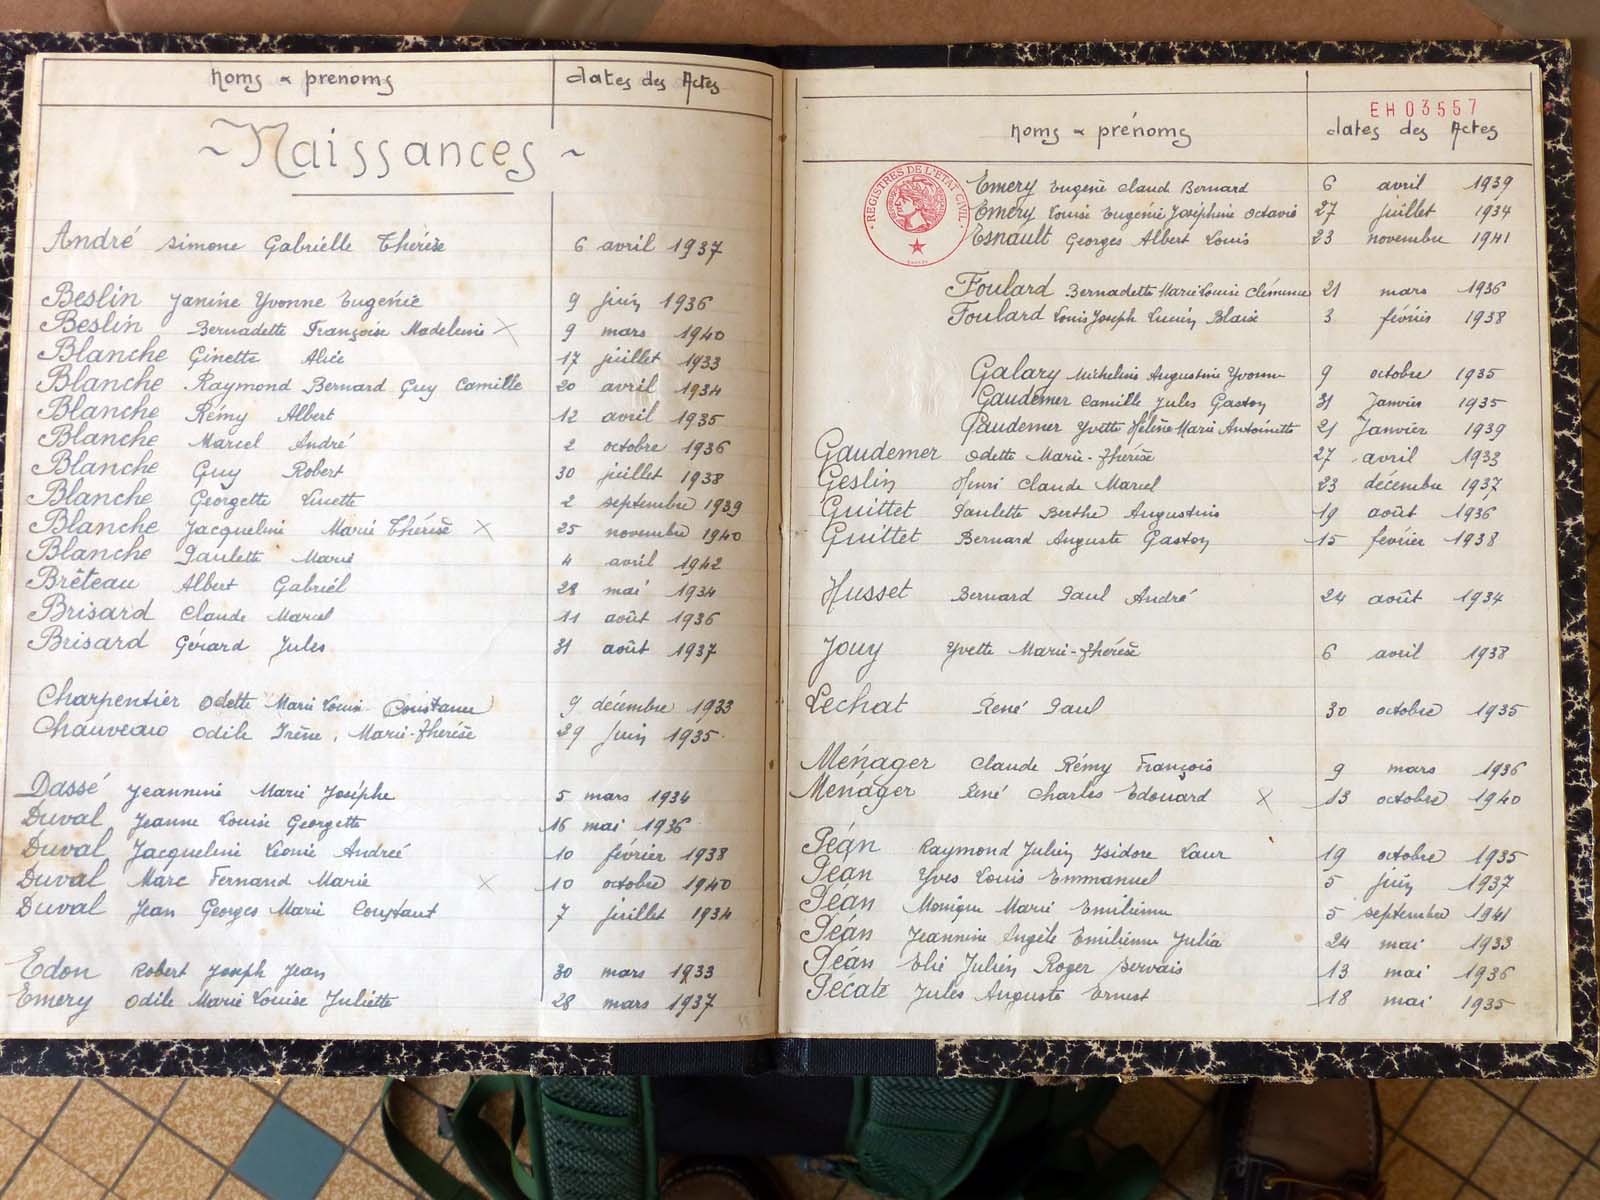 noms & prenoms dates des Actes
~ Naissances ~
André Simone Gabrielle Thérèse 6 avril 1937
Beslin Janine Yvonne Eugénie 9 juin 1936
Beslin Bernadette Françoise Madeleine × 9 mars 1940
Blanche Ginette Alice 17 juillet 1933
Blanche Raymond Bernard Guy Camille 20 avril 1934
Blanche Rémy Albert 12 avril 1935
Blanche Marcel André 2 octobre 1936
Blanche Guy Robert 30 juillet 1938
Blanche Georgette Lucette 2 septembre 1939
Blanche Jacqueline Marie Thérèse × 25 novembre 1940
Blanche Paulette Marie 4 avril 1942
Brêteau Albert Gabriel 28 mai 1934
Brisard Claude Marcel 11 août 1936
Brisard Gérard Jules 31 août 1937
Charpentier Odette Marie Louise Constance 9 décembre 1933
Chauveau Odile Irène, Marie-Thérèse 29 juin 1935
Dassé Jeannine Marie Josèphe 5 mars 1934
Duval Jeanne Louise Georgette 16 mai 1936
Duval Jacqueline Léonie Andrée 10 février 1938
Duval Marc Fernand Marie × 10 octobre 1940
Duval Jean Georges Marie Constant 7 juillet 1934
Edon Robert Joseph Jean 30 mars 1933
Emery Odile Marie Louise Juliette 28 mars 1937
EH03557
noms & prénoms dates des Actes
REGISTRES DE L'ETAT CIVIL
Emery Eugène Claud Bernard 6 avril 1939
Emery Louise Eugénie Joséphine Octavie 27 juillet 1934
Esnault Georges Albert Louis 23 novembre 1941
Foulard Bernadette Marie Louise Clémence 21 mars 1936
Foulard Louis Joseph Lucien Blaise 3 février 1938
Galary Micheline Augustine Yvonne 9 octobre 1935
Gaudemer Camille Jules Gaston 31 Janvier 1935
Gaudemer Yvette Hélène Marie Antoinette 21 Janvier 1939
Gaudemer Odette Marie-Thérèse 27 avril 1933
Geslin Henri Claude Marcel 23 décembre 1937
Guittet Paulette Berthe Augustine 19 août 1936
Guittet Bernard Auguste Gaston 15 février 1938
Husset Bernard Paul André 24 août 1934
Jouy Yvette Marie-Thérèse 6 avril 1938
Lechat René Paul 30 octobre 1935
Ménager Claude Rémy François 9 mars 1936
Ménager René Charles Edouard × 13 octobre 1940
Péan Raymond Julien Isidore Laur 19 octobre 1935
Péan Yves Louis Emmanuel 5 juin 1937
Péan Monique Marie Emilienne 5 septembre 1941
Péan Jeannine Angèle Emilienne Julia 24 mai 1933
Péan Elie Julien Roger Servais 13 mai 1936
Pécate Jules Auguste Ernest 18 mai 1935